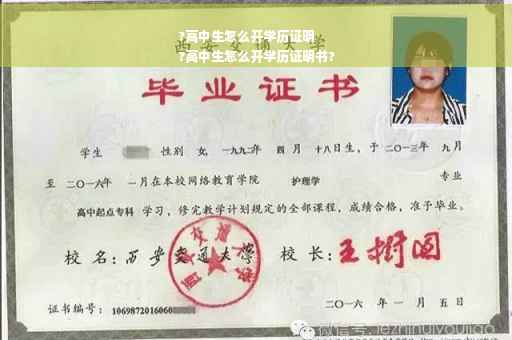 ?高中生怎么开学历证明
西安交通大学
?高中生怎么开学历证明书?
毕业证书
学生 性别 女, 一九九二年 四 月 十八日生, 于 二〇一三年 九 月
至 二〇一六年 一 月在本校网络教育学院 护理学 专业
高中起点专科 学习, 修完教学计划规定的全部课程, 成绩合格, 准予毕业。
校 名: 西安交通大学 校 长: 王树国
西安交通大学
证书编号: 1069872016060 二〇一六 年 一 月 五 日
微信号: jezhihuiyoujiao